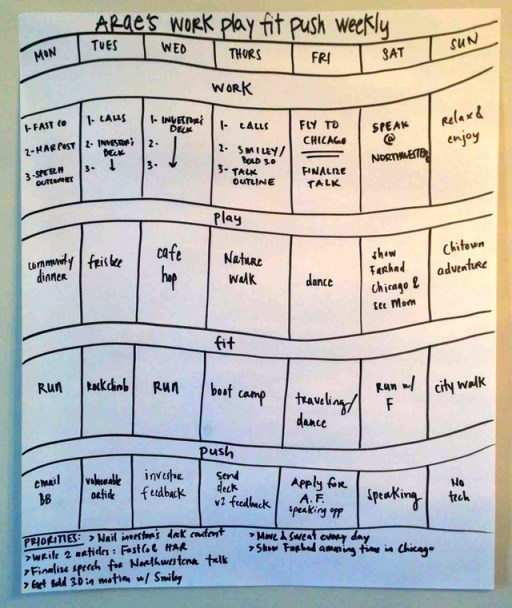 ARAE's WORK play fit push weekly
MON TUES WED THURS FRI SAT SUN
WORK
1- FAST CO
2- HAR POST
3- SPEECH OUTCOMES
1- CALLS
2- INVESTOR'S DECK
3- ↓
1- INVESTOR'S DECK
2-
3- ↓
1- CALLS
2- SMILEY/ BOLD 3.0
3- TALK OUTLINE
FLY TO
CHICAGO
FINALIZE
TALK
SPEAK
@
NORTHWESTERN
relax &
enjoy
play
community
dinner
frisbee
cafe
hop
Nature
walk
dance
show
Farhad
Chicago &
see Mom
Chitown
adventure
fit
RUN
Rockclimb
RUN
boot camp
traveling/
dance
RUN w/
F
city walk
push
email
BB
vulnerable
article
investor
feedback
send
deck
v2 feedback
Apply for
A.F.
speaking opp
speaking
No
tech
PRIORITIES: > Nail investor's deck content
> Write 2 articles: FastCo & HAR
> Finalize speech for Northwestern talk
> Get Bold 3.0 in motion w/ Smiley
> Move & sweat every day
> Show Farhad amazing time in Chicago